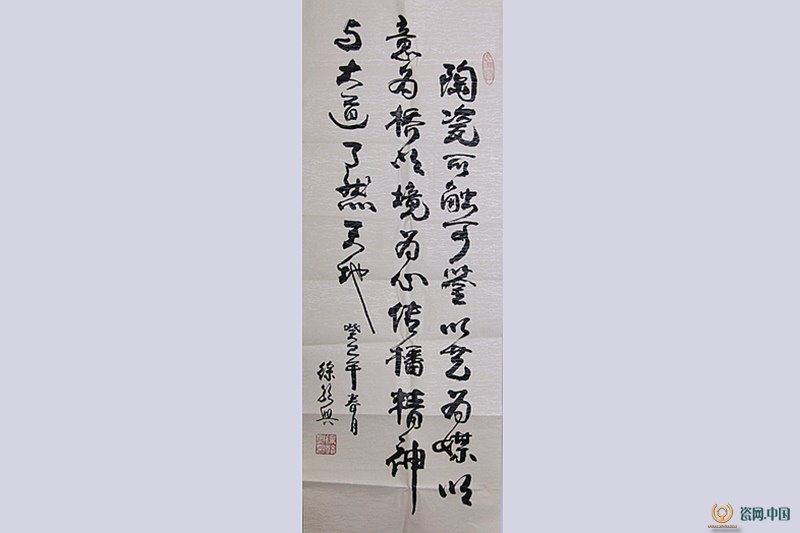 陶瓷可触可鉴以艺为媒以
意为桥以境为心传播精神
与大道了然天地
癸巳年春月
徐 興
瓷网.中国